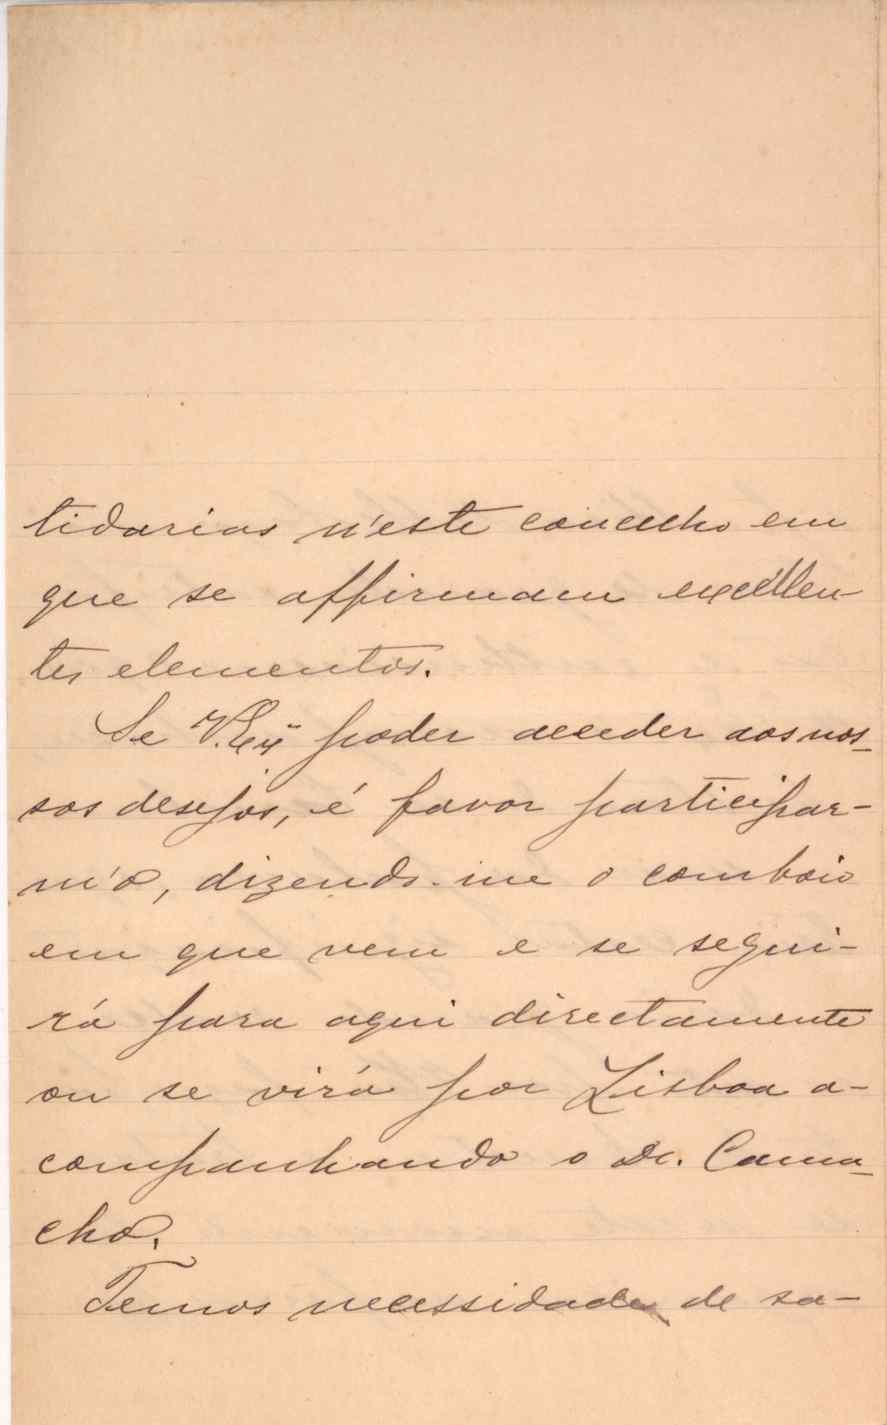 tidarias n'este concelho em
que se affirmam excellen-
tes elementos.
Se V. Exª poder acceder aos nos-
sos desejos, é favor participar-
m'o, dizendo-me o comboio
em que vem e se segui-
rá para aqui directamente
ou se virá por Lisboa a-
companhando o Dr. Cama-
cho.
Temos necessidade de sa-